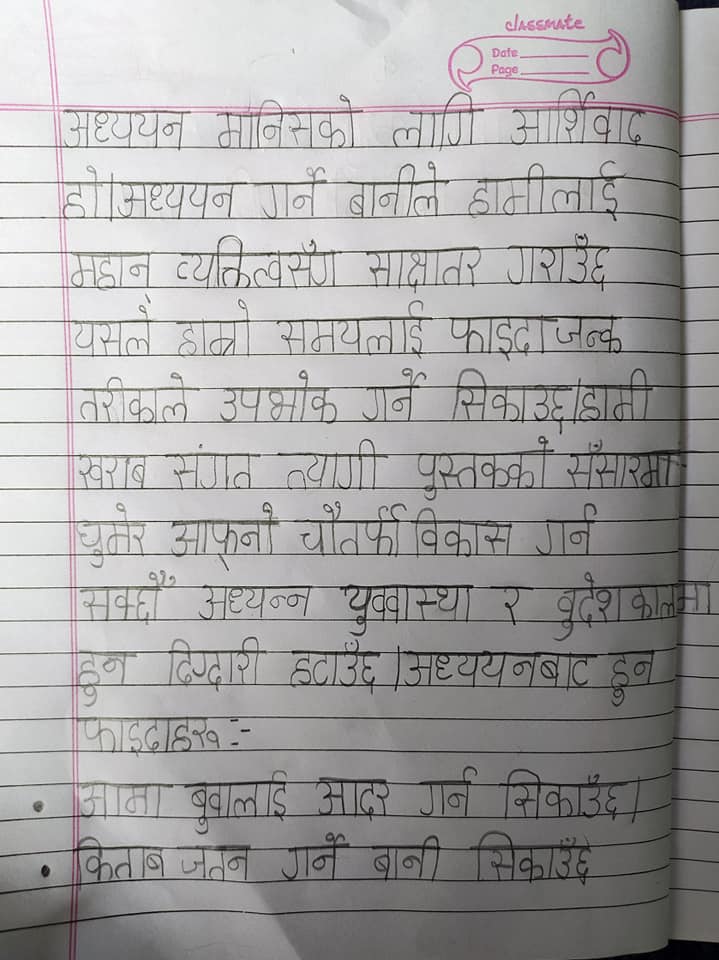 classmate
Date
Page
अध्ययन मानिसको लागि आर्शिवाद
हो।अध्ययन गर्ने बानीले हामीलाई
महान् व्यक्तित्वसँग साक्षातर गराउँछ
यसले हाम्रो समयलाई फाइदाजन्क
तरीकाले उपभोक गर्ने सिकाउछ।हामी
खराब संगत त्यागी पुस्तकको सँसारमा
घुमेर आफ्नो चौतर्फी विकास गर्न
सक्दछौँ अध्यन्न युववास्था र वुदेशकालमा
हुन दिग्दारी हटाउँछ।अध्ययनबाट हुन
फाइदाहरू :-
• आमा बुवालाई आदर गर्न सिकाउँछ।
• किताब जतन गर्ने बानी सिकाउँछ